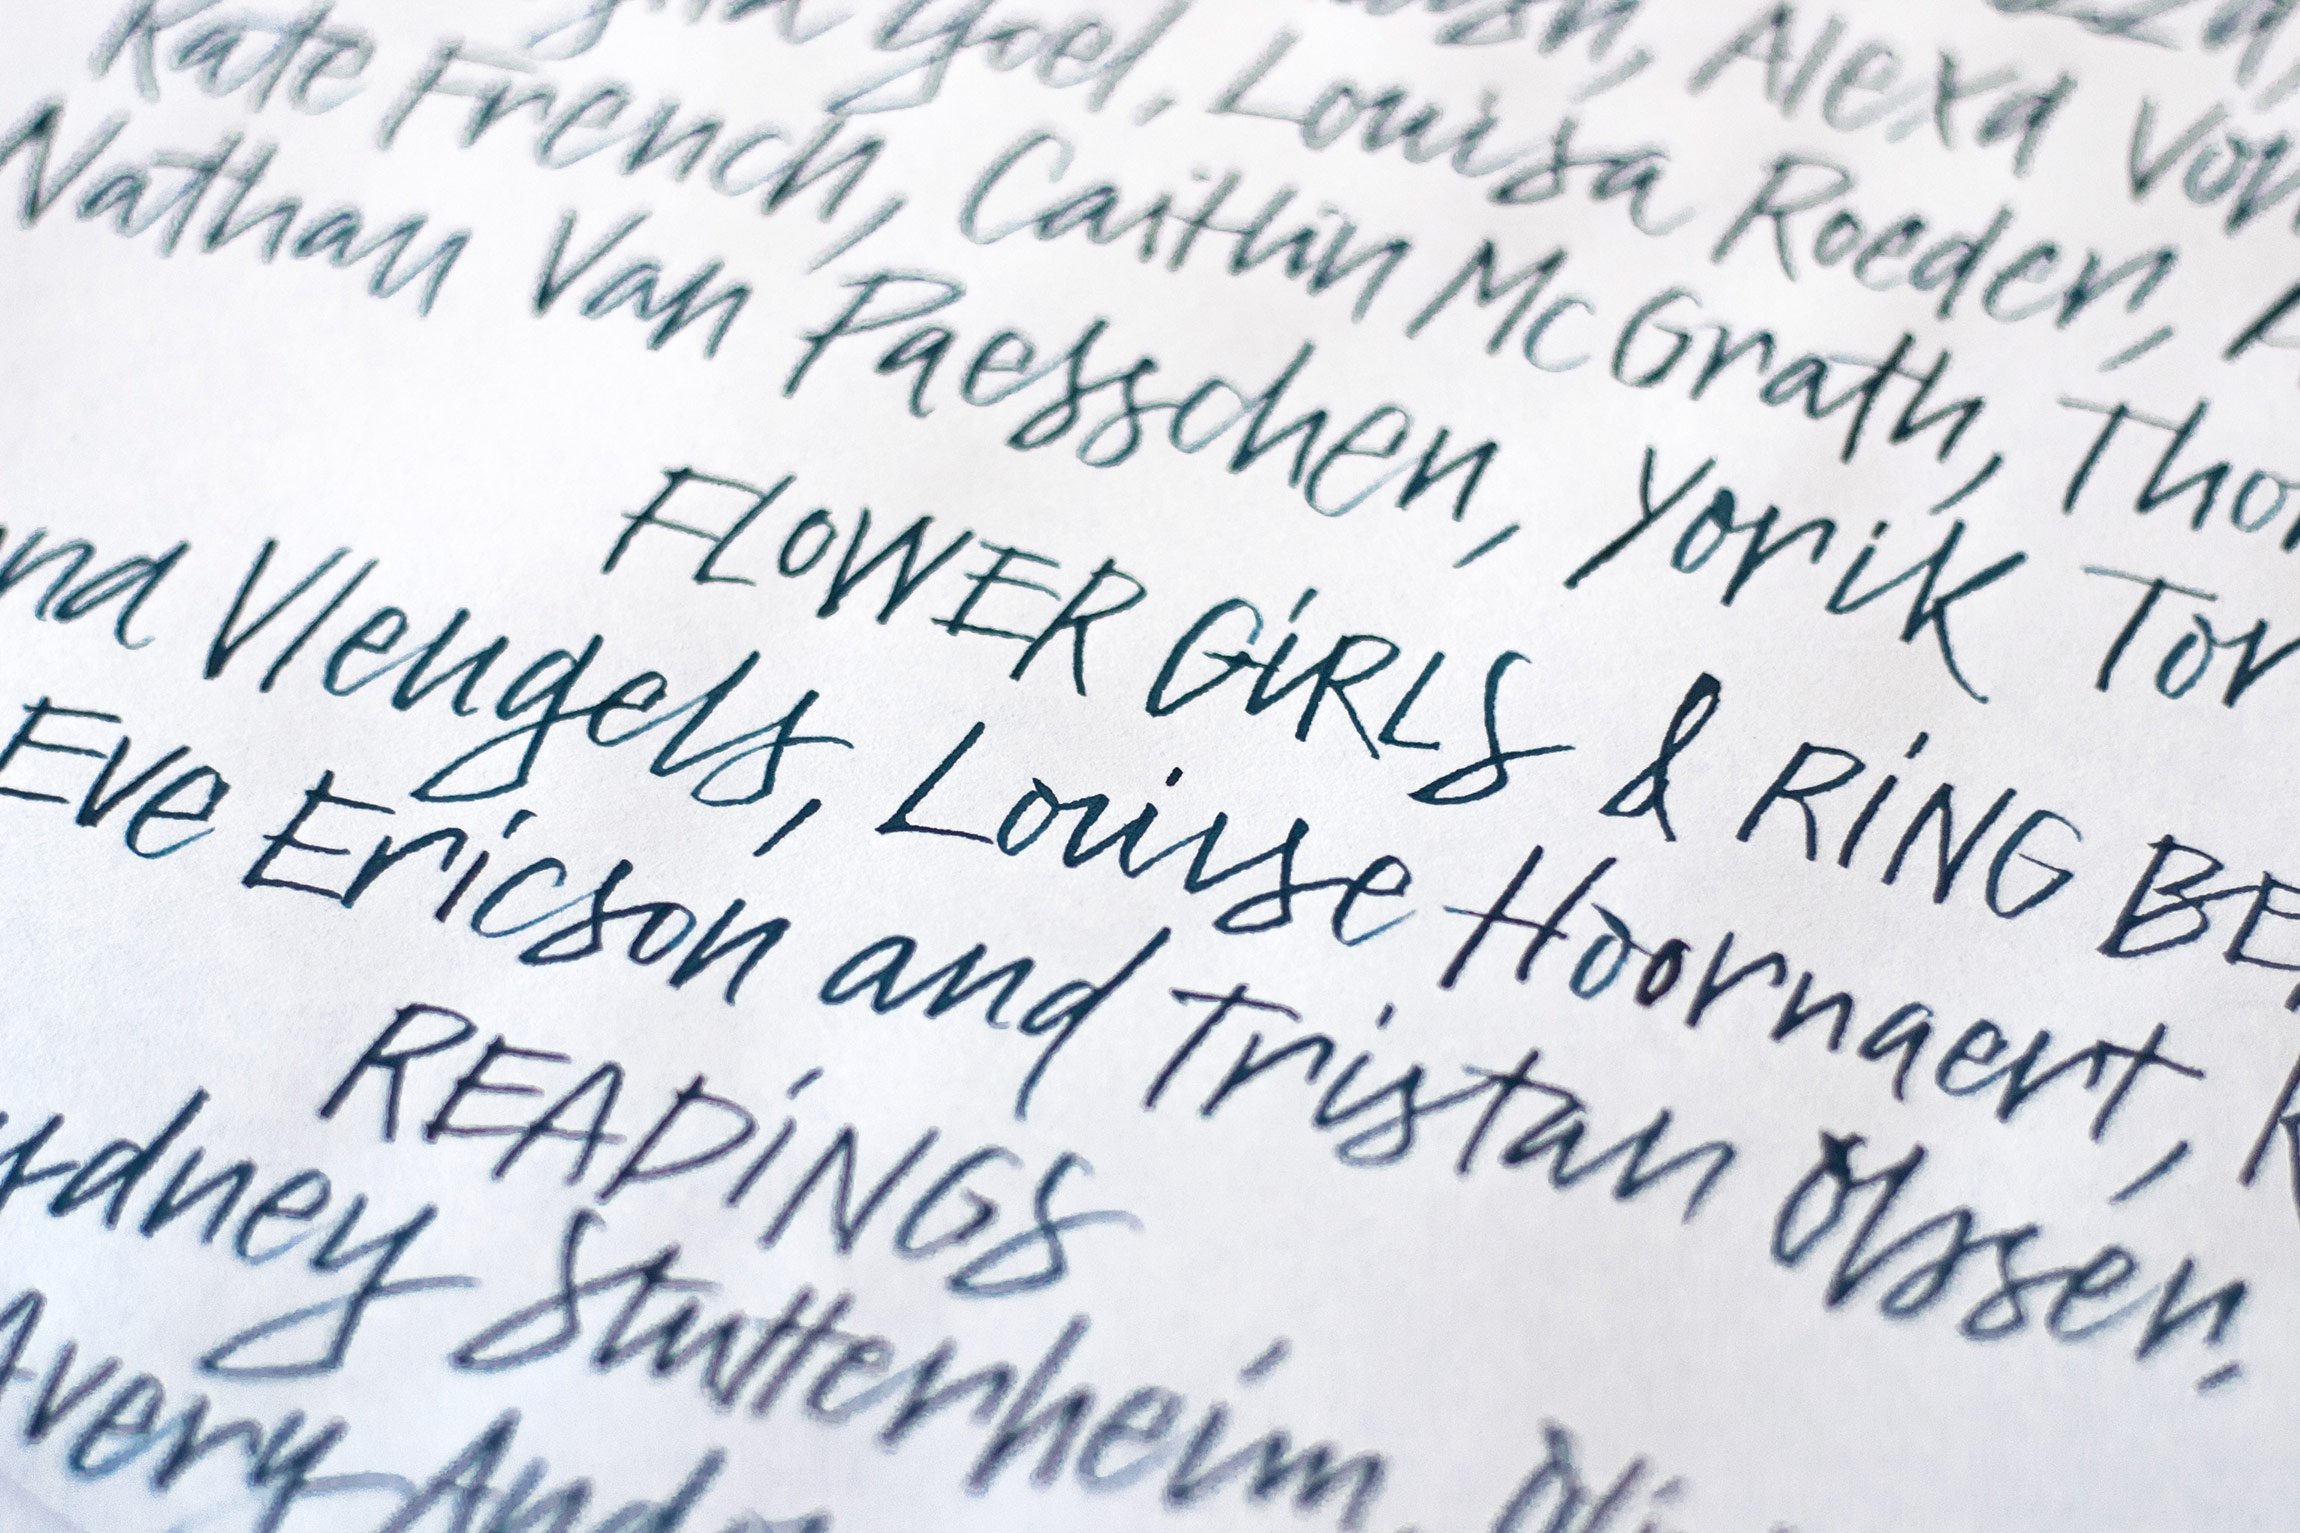 Alexa Von
Yoel, Louisa Roeder,
Kate French, Caitlin McGrath, Tho
Nathan Van Paesschen, Yorik Tor
FLOWER GiRLS & RiNG BE
Vlengels, Louise Hoornaert,
Eve Ericson and Tristan Olssen.
READiNGS
ydney Stutterheim, Oli
Avery